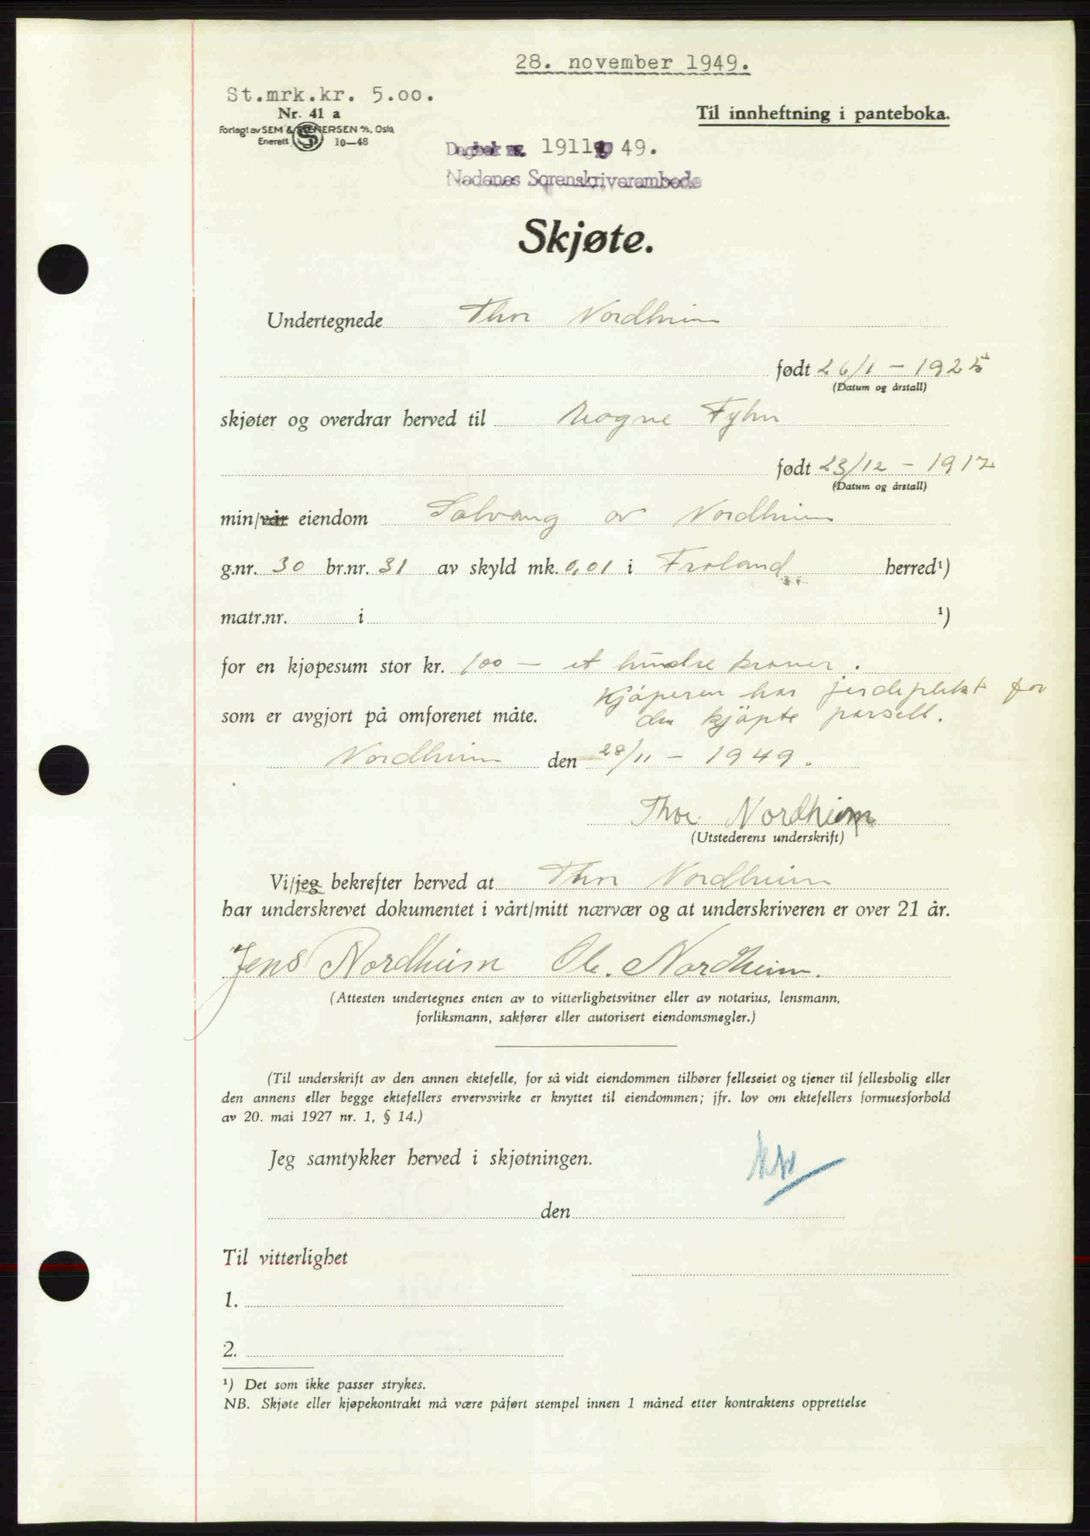 28. november 1949.
St.mrk.kr. 5.00.
Nr. 41 a
Forlagt av SEM & STENERSEN A/S, Oslo
Enerett 10-48
Til innheftning i panteboka.
Dagbok nr. 1911 19 49.
Nedenes Sorenskriverembede
Skjøte.
Undertegnede Thor Nordheim
født 26/1 - 1925
(Datum og årstall)
skjøter og overdrar herved til Mogne Fyhn
født 23/12 - 1917
(Datum og årstall)
min/vår eiendom Solvang av Nordheim
g.nr. 30 br.nr. 31 av skyld mk. 0,01 i Froland herred¹)
matr.nr. i ¹)
for en kjøpesum stor kr. 100 - et hundre kroner.
Kjøperen har jerdeplikt for
som er avgjort på omforenet måte. den kjøpte parsell.
Nordheim den 28/11 - 1949.
Thor Nordheim
(Utstederens underskrift)
Vi/jeg bekrefter herved at Thor Nordheim
har underskrevet dokumentet i vårt/mitt nærvær og at underskriveren er over 21 år.
Jens Nordheim Ole. Nordheim.
(Attesten undertegnes enten av to vitterlighetsvitner eller av notarius, lensmann,
forliksmann, sakfører eller autorisert eiendomsmegler.)
(Til underskrift av den annen ektefelle, for så vidt eiendommen tilhører felleseiet og tjener til fellesbolig eller
den annens eller begge ektefellers ervervsvirke er knyttet til eiendommen; jfr. lov om ektefellers formuesforhold
av 20. mai 1927 nr. 1, § 14.)
Jeg samtykker herved i skjøtningen.
den
Til vitterlighet
1.
2.
¹) Det som ikke passer strykes.
NB. Skjøte eller kjøpekontrakt må være påført stempel innen 1 måned etter kontraktens opprettelse